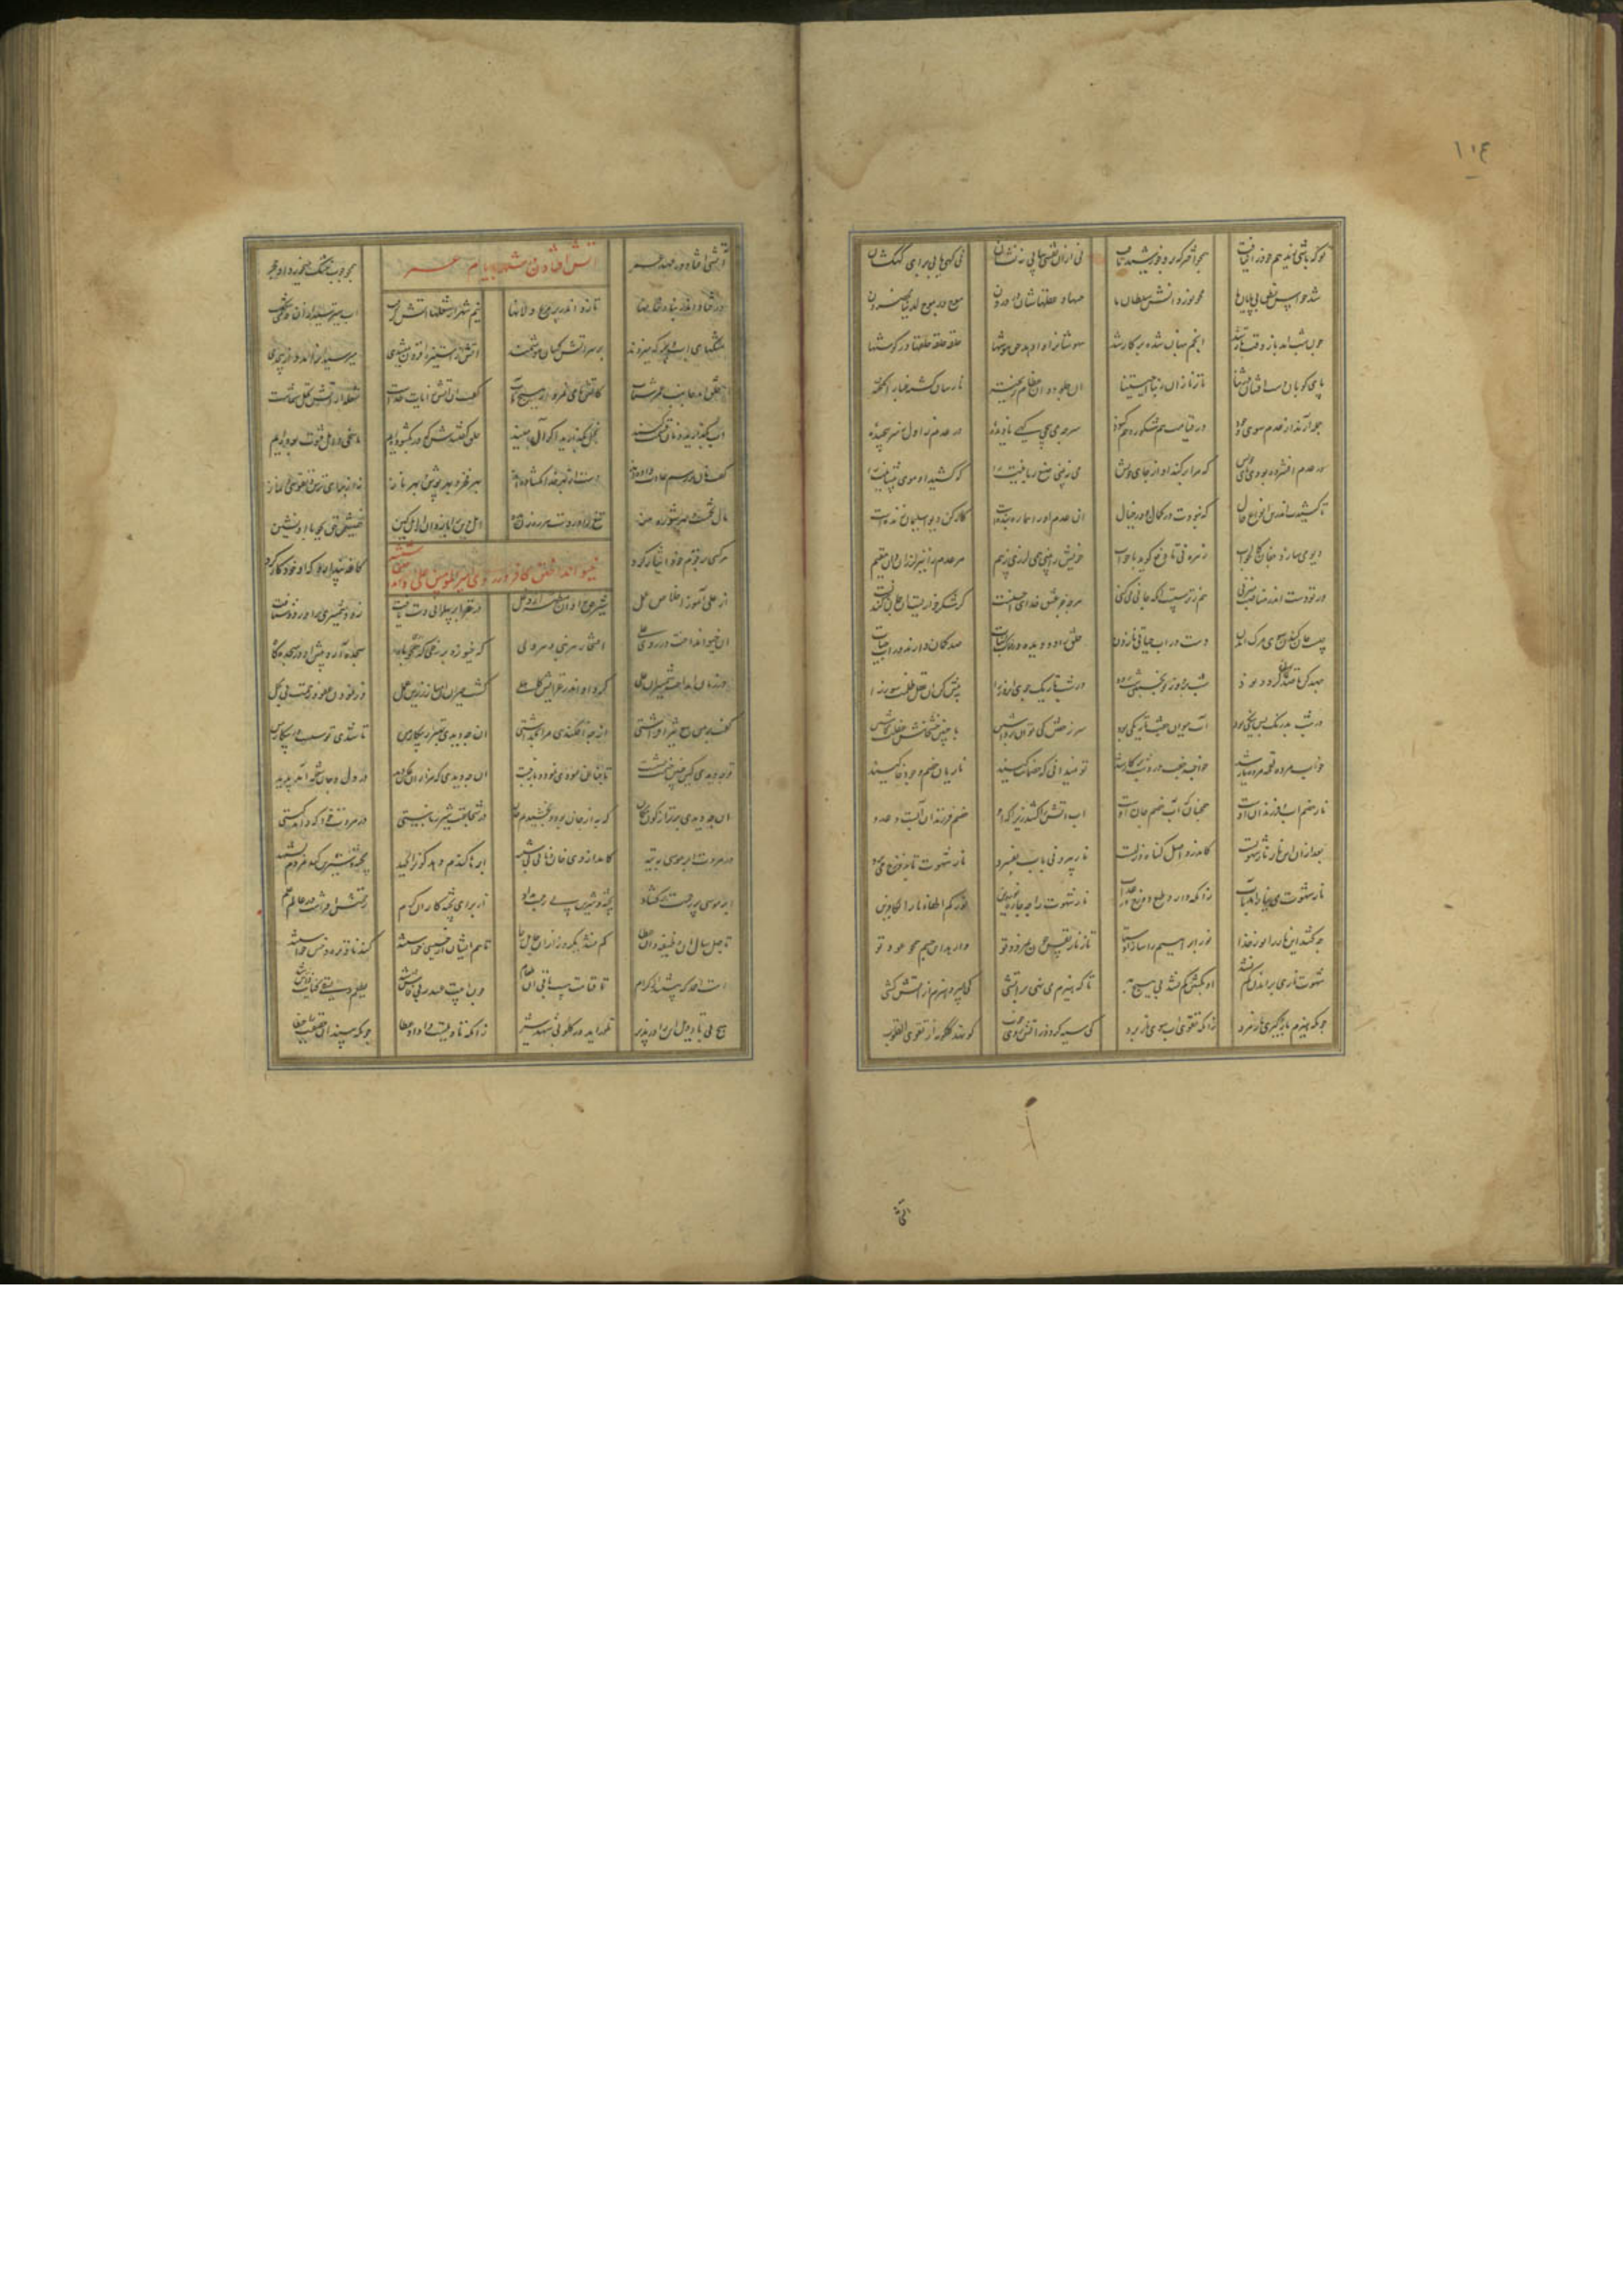 ۱۰۴
شد حواس و نطق بی‌پایان ما محو نور دانش سلطان ما
چون شب آمد باز وقت بار شد انجم پنهان شده بر کار شد حلقه حلقه حلقها در گوشها
پای کوبان دست افشان در ثنا ناز نازان ربنا احییتنا آن جلود و آن عظام ریخته فارسان گشته غبار انگیخته
حمله آرند از عدم سوی وجود در قیامت هم شکور و هم کنود سر چه می‌پیچی کنی نادیده در عدم ز اول نه سر پیچیده
در عدم افشرده بودی پای خویش که مرا که برکند از جای خویش می نبینی صنع ربانیت را که کشید او موی پیشانیت را
تا کشیدت اندرین انواع حال که نبودت در گمان و در خیال آن عدم او را هماره بنده است کار کن دیوا سلیمان زنده است
دیو می سازد جفان کالجواب زهره نی تا دفع گوید یا جواب خویش را بین چون همی لرزی ز بیم مر عدم را نیز لرزان دان مقیم
ور تو دست اندر مناصب میزنی هم ز ترس است آنکه جانی میکنی هرچه جز عشق خدای احسنست گر شکر خواریست آن جان کندنست
چیست جان کندن سوی مرگ آمدن دست در آب حیاتی نازدن خلق را دو دیده در خاک و ممات صد گمان دارند در آب حیات
در شب تاریک جوی آن روز را پیش کن آن عقل ظلمت سوز را
در شب بدرنگ بس نیکی بود آب حیوان جفت تاریکی بود سر ز خفتن کی توان برداشتن با چنین صد تخم غفلت کاشتن
خواب مرده لقمه مرده یار شد خواجه خفت و دزد شب بر کار شد تو نمیدانی که خصمانت کیند ناریان خصم وجود خاکیند
نار خصم آب و فرزندان اوست همچنانک آب خصم جان اوست آب آتش را کشد زیرا که او خصم فرزندان آبست و عدو
بعد از آن این نار نار شهوتست کاندرو اصل گناه و زلتست نار بیرونی بآبی بفسرد نار شهوت تا بدوزخ می‌برد
نار شهوت می نیارامد بآب زانکه دارد طبع دوزخ در عذاب نار شهوت را چه چاره نور دین نورکم اطفاء نار الکافرین
چه کشد این نار را نور خدا نور ابراهیم را ساز اوستا تا ز نار نفس چون نمرود تو وارهد این جسم همچو عود تو
شهوت ناری براندن کم نشد او بماندن کم شود بی هیچ بد تا که هیزم می نهی بر آتشی کی بمیرد آتش از هیزم کشی
چونکه هیزم بازگیری نار مرد زانکه تقوی آب سوی نار برد کی سیه گردد ز آتش روی خوب کو نهد گلگونه از تقوی القلوب
آتشی
آتشی افتاد در عهد عمر آتش افتادن در شهر بایام عمر همچو چوب خشک میخورد او حجر
در فتاد اندر بنا و خانها تا زد اندر پر مرغ و لانها نیم شهر از شعلها آتش گرفت آب میترسید از آن و میشگفت
مشکهای آب و سرکه میزدند بر سر آتش کسان هوشمند آتش از استیزه افزون میشدی میرسید او را مدد از بیحدی
خلق آمد جانب عمر شتاب کاتش ما می نمیرد هیچ از آب گفت آن آتش ز آیات خداست شعله از آتش بخل شماست
آب بگذارید و نان قسمت کنید بخل بگذارید اگر آل منید خلق گفتندش که در بگشوده‌ایم ما سخی و اهل فتوت بوده‌ایم
گفت نان در رسم و عادت داده‌اید دست از بهر خدا نگشاده‌اید بهر فخر و بهر بوش و بهر ناز نه از برای ترس و تقوی و نیاز
مال تخمست و بهر شوره منه تیغ را در دست هر رهزن مده اهل دین را باز دان از اهل کین همنشین حق بجو با او نشین
هر کسی بر قوم خود ایثار کرد کاغه پندارد که او خود کار کرد
خیو انداختن کافر در روی امیر المؤمنین علی
از علی آموز اخلاص عمل شیر حق را دان منزه از دغل در غزا بر پهلوانی دست یافت زود شمشیری برآورد و شتافت
او خیو انداخت در روی علی افتخار هر نبی و هر ولی سجده آرد پیش او در سجده‌گاه
در زمان انداخت شمشیر آن علی کرد او اندر غزایش کاهلی گشت حیران آن مبارز زین عمل وز نمودن عفو و رحمت بی محل
گفت بر من تیغ تیز افراشتی از چه افکندی مرا بگذاشتی آن چه دیدی بهتر از پیکار من تا شدی تو سست در اشکار من
آن چه دیدی که چنین خشمت نشست تا چنان برقی نمود و باز جست آن چه دیدی که مرا زان عکس دید در دل و جان شعله آمد پدید
آن چه دیدی برتر از کون و مکان که به از جان بود و بخشیدیم جان در شجاعت شیر ربانیستی در مروت خود که داند کیستی
در مروت ابر موسی بتیه کامد از وی خوان و نان بی شبیه ابرها گندم دهد کانرا بجهد پخته و شیرین کند مردم چو شهد
ابر موسی پر رحمت برگشاد پخته و شیرین بی زحمت بداد از برای پخته خواران کرم رحمتش افراشت در عالم علم
تا چهل سال آن وظیفه و آن عطا کم نشد یکروز از آن اهل رجا تا هم ایشان از خسیسی خاستند گندنا و تره و خس خواستند
امت احمد که هستند از کرام تا قیامت هست باقی آن طعام
هیچ بی تأویل این را در پذیر تا درآید در گلو چون شهد و شیر زانکه تأویلست وا داد عطا چونکه بیند آن حقیقت را خطا